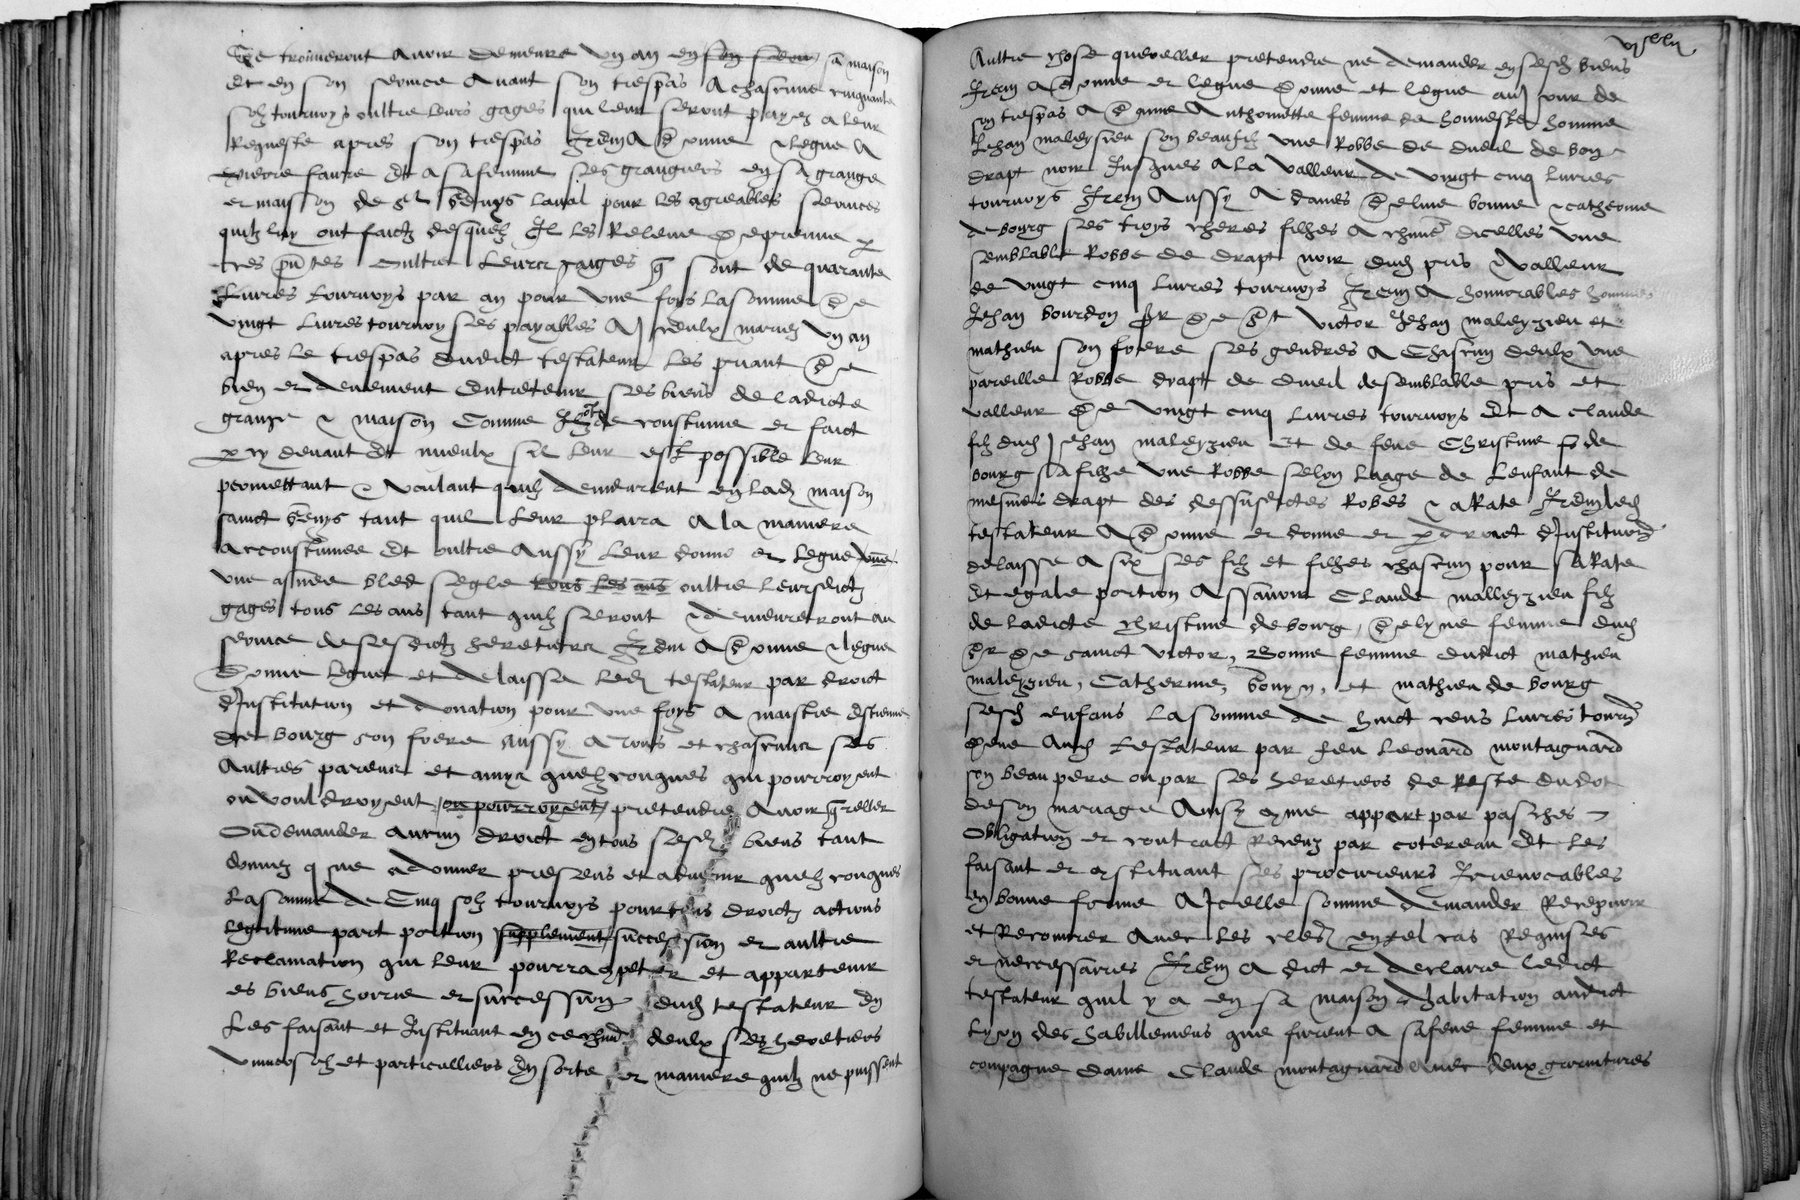 Se trouveront avoir demeure ung an en son serv sa maison
Et en son service avant son trespas A chascune cinquante
solz tournoys oultre leurs gages qui leur seront payez a leur
Requeste apres son trespas Item A donne & legue A
pierre faure Et a sa femme ses grangiers en sa grange
et maison de st genys laval pour les agreables services
quilz luy ont faictz desquelz Il les Releve de preuve par
ces pntes Oultre Leurs gaiges qui sont de quarante
Livres tournoys par an pour une foys la somme de
vingt livres tournoyses payables A iceulx mariez Un an
apres le trespas dudict testateur les priant de
bien et deuement Entretenir ses biens de ladicte
grange & maison Comme Ilz ont de coustume et faict
par cy devant Et mieulx sil leur est possible leur
promettant & voulant quilz demeurent en lad maison
sainct genys tant quil leur plaira A la maniere
accoustumee Et oultre Aussy leur donne et legue
une asnee bled seigle tous les ans oultre leursdictz
gages tous les ans tant quilz seront & demeureront au
service de sesdictz heretiers Item A donne & legue
Donne legue et delaisse led testateur par droict
dInstitution et donation pour une foys A maistre Estienne
de bourg son frere Aussy A tous et chascuns ses
Aultres parens et amys quelzconques qui pourroyent
ou vouldroyent ou pourroyent pretendre Avoir quereller
Ou demander aucun droict en tous sesd biens tant
donnez que a donner presens et advenir quelzconques
La somme de Cinq solz tournoys pour tous droictz actions
legitime part portion supplement succession et aultre
Reclamation qui leur pourra competer et appartenir
es biens horrie et succession dud testateur En
Les faisant et Instituant en ce deulx ses heretiers
universelz et particulliers En sorte et maniere quilz ne puissent
Aultre chose quereller pretendre ne demander en sesd biens
Item A donne et legue Donne et legue au jour de
son trespas A dame Anthoinette femme de honneste homme
Jehan maleysieu son beaufilz une Robbe de dueil de bon
drapt noir Jusques A la valleur de vingt cinq livres
tournoys Item Aussy A dames deline bonne & catherine
de bourg ses troys cheres filhes A chune dicelles une
semblable Robbe de drapt noir dud pris & valleur
de vingt cinq livres tournoys Item A honnorables hommes
Jehan bourdon sr de st victor Jehan maleyzieu et
mathieu son frere ses gendres A Chascun deulx une
pareille Robbe drapt de dueil de semblable pris et
valleur de vingt cinq livres tournoys Et A claude
filz dud Jehan maleyzieu Et de feue Christine de
bourg sa filhe une Robbe selon laage de Lenfant de
mesmes drapt des dessusdictes Robes & a Rate Item led
testateur A donne et donne et par droict dInstitution
delaisse A six ses filz et filhes chascun pour sa Rate
Et egale portion Assavoir Claude malleyzieu filz
de ladicte christine de bourg, delyne femme dud
sr de sainct victor, Bonne femme dudict mathieu
maleyzieu, Catherine, bony, et mathieu de bourg
sesd enfans la somme de huict cens livres tourn
deue Aud testateur par feu leonard montaignard
son beau pere ou par ses heretiers de Reste du dot
de son mariage Ainsy que appart par pasches
Obligation et contract Receuz par cotereau Et les
faisant et constituant ses procureurs Irrevocables
en bonne forme A Icelle somme demander Recepvoir
et Recouvrer Avec les en tel cas Requises
et necessaires Item A dict et declaire ledict
testateur quil y a en sa maison dhabitation audict
Lyon des habillemens que furent A sa feue femme et
compagne dame Claude montaignard Avec deux garnitures